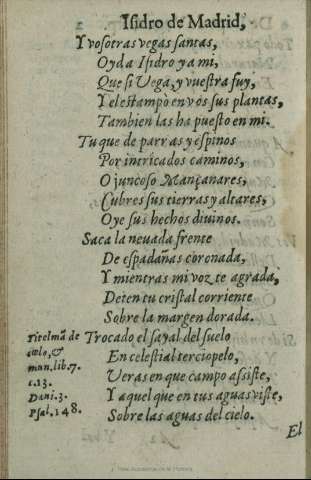 Isidro de Madrid,
Y vosotras vegas santas,
Oyd a Isidro ya mi,
Que si Vega, y vuestra fuy,
Y el estampo en vos sus plantas,
Tambien las ha puesto en mi.
Tu que de parras y espinos
Por intricados caminos,
O juncoso Mançanares,
Cubres sus tierras y altares,
Oye sus hechos diuinos.
Saca la neuada frente
De espadañas coronada,
Y mientras mi voz te agrada,
Deten tu cristal corriente
Sobre la margen dorada.
Trocado el sayal del suelo
En celestial terciopelo,
Veras en que campo assiste,
Y aquel que en tus aguas viste,
Sobre las aguas del cielo.
Titelmã de
cœlo, &
mun. lib. 7.
c. 13.
Dani. 3.
Psal. 148.
El